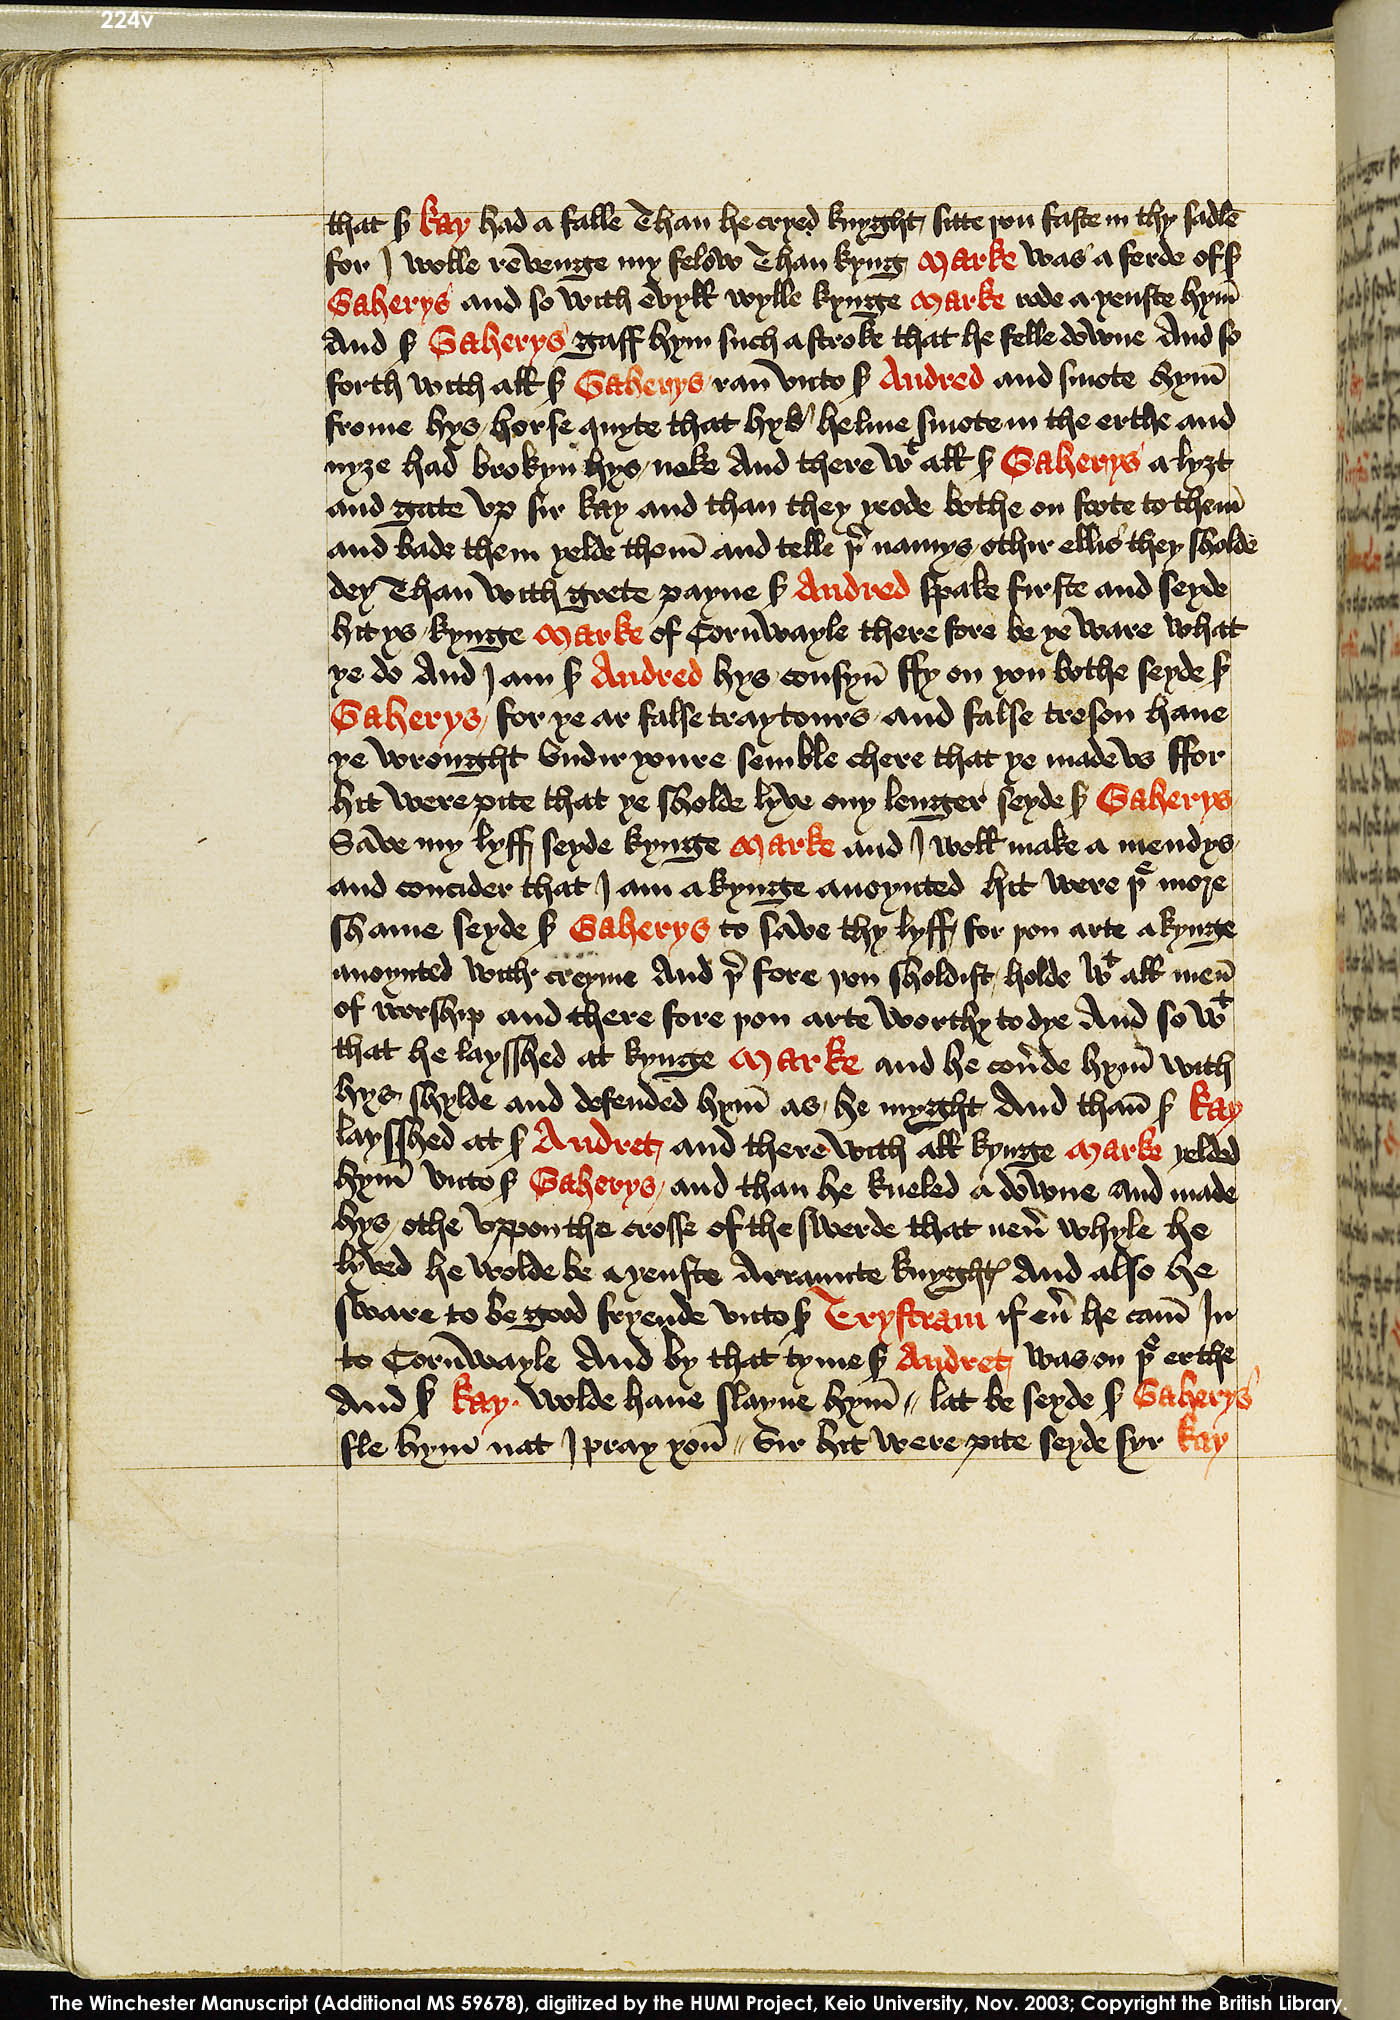 224v
that ẜ kay had a falle Than he cryed knyght sitte þou faste in thy sadle
for I wolle revenge my felow Than kyng Marke was a ferde of ẜ
Gaherys and so with evyll wylle kynge Marke rode ayenste hym̄
And ẜ Gaherys gaff hym such a stroke that he felle downe And so
forth with all ẜ Gaherys ran̄ vnto ẜ Andred and smote hym̄
frome hys horse quyte that hys helme smote in the erthe and
nyȝe had brokyn̄ hys neke And there wᵗ all ẜ Gaherys a lyȝt
and gate vp sir kay and than they yeode bothe on foote to them̄
and bade them yelde them̄ and telle þʳ namys othir ellis they sholde
dey Than̄ with grete payne ẜ Andred spake firste and seyde
hit ys kynge Marke of Cornwayle there fore be ye ware what
ye do And I am ẜ Andred hys cousyn̄ ffy on you bothe seyde ẜ
Gaherys for ye ar false traytours and false treson haue
ye wrought vndir youre semble chere that ye made vs ffor
hit were pite that ye sholde lyve ony lenger seyde ẜ Gaherys
Save my lyff seyde kynge Marke and I woll make a mendys
and concider that I am a kynge anoynted hit were þᵉ more
shame seyde ẜ Gaherys to save thy lyff for þou arte a kynge
anoynted with creyme And þʳ fore þou sholdist holde wᵗ all men̄
of worship and there fore þou arte worthy to dye And so wᵗ
that he laysshed at kynge Marke and he cou'de hym̄ with
hys shylde and defended hym̄ as he myght And than̄ ẜ kay
laysshed at ẜ Andret and there with all kynge Marke yelded
hym̄ vnto ẜ Gaherys and than he kneled a downe and made
hys othe vppon the crosse of the swerde that neu' whyle he
lyved he wolde be ayenste Arraunte knyghtꝭ And also he
sware to be good fryende vnto ẜ Trystram if eu' he cam̄ In
to Cornwayle And by that tyme ẜ Andret was on þᵉ erthe
And ẜ kay. wolde haue slayne hym̄ // lat be seyde ẜ Gaherys
sle hym nat I pray you // Sir hit were pite seyde syr kay
The Winchester Manuscript (Additional MS 59678), digitized by the HUMI Project, Keio University, Nov. 2003; Copyright the British Library.